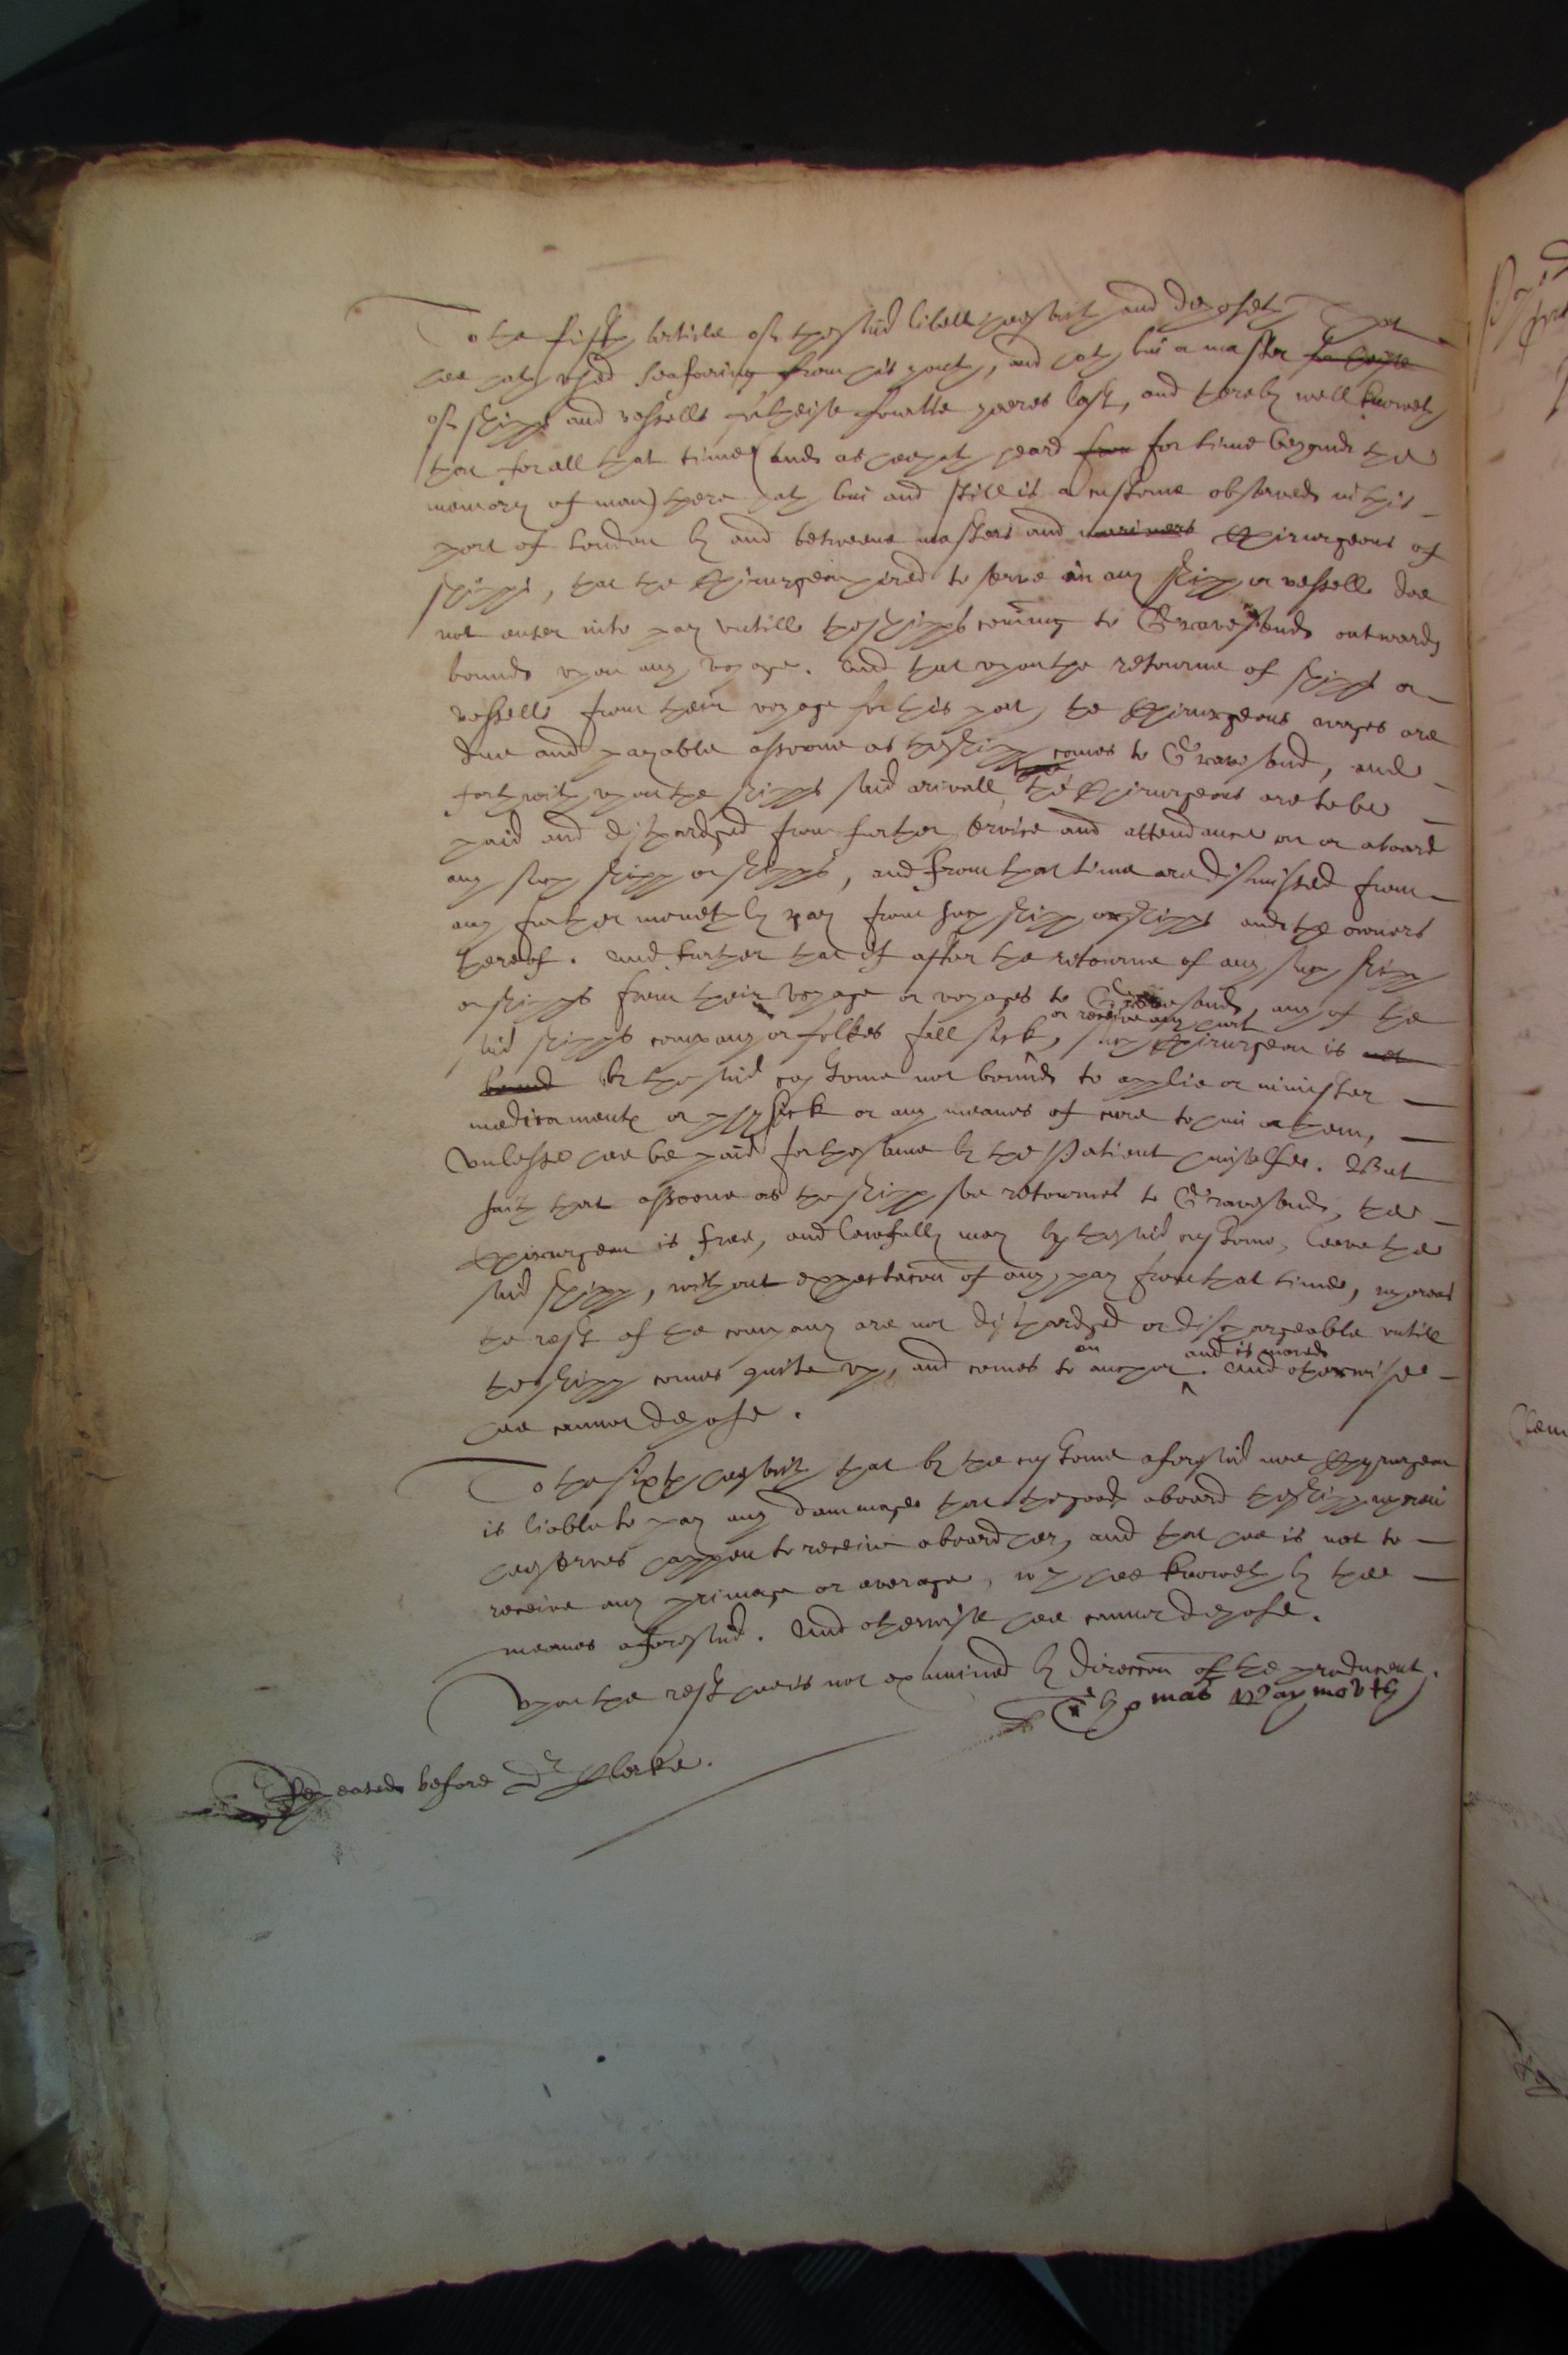 To the fifth article of the said libell hee saith and deposeth That
hee hath used seafaring from his youth, and hath bin a master
of shipps and vessells theise yeeres last, and thereby well knoweth
that for all that time (and as hee hath heard from for time beyond the
memory of man) there hath bin and still is a custome observed in this
port of London by and betweene masters and mariners Chirurgeons of
shipps, that the Chirurgeon hired to serve in any shipp or vessell doe
not enter into pay untill the shipps coming to Gravesend outwards
bound upon any voyage. And that upon the retourne of shipps or
vessells from their voyage for this port, the Chirurgeons wages are
due and payable assoone as the shipp comes to Gravesend, and
forthwith upon the shipps said arivall the Chirurgeons are to be
paid and discharged from further service and attendance on or aboard
any such shipp or shipps, and from that time are dismissed from
any further monethly pay from such shipp or shipps and the owners
thereof. And further that if after the retourne of any such shipp
or shipps from their voyage or voyages to Gravesend, any of the
said shipps company or folkes fall sick, or receive any hurt such Chirurgeon is not
bound by the said custome not bound to applie or minister
medicaments or physick or any meanes of cure to him or them,
unlesse hee be paid for the same by the Patient himselfe. But
saith that assoone as the shipp soe retournes to Gravesend, the
Chirurgeon is free, and lawfully may by the said custome, leave the
said shipp, without expectacon of any pay from that time, whereas
the rest of the company are not discharged or dischargeable untill
the shipp comes quite up, and comes to an anchor and is moored. And otherwise
hee cannot depose.
To the sixth hee saith that by the custome aforesaid noe Chyrurgeon
is liable to pay any dammages that the goods aboard the shipp wherein
hee serves happen to receive aboard her, and that hee is not to
receive any primage or average, wch hee knoweth by the
meanes aforesaid. And otherwise hee cannot depose.
Upon the rest hee is not examined by direccon of the producent.
Thomas Waymouth
Repeated before Dr Clerke.